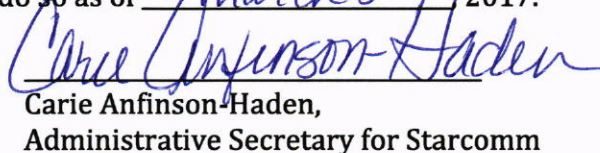 do so as of March , 2017.
Carie Anfinson-Haden
Carie Anfinson-Haden,
Administrative Secretary for Starcomm